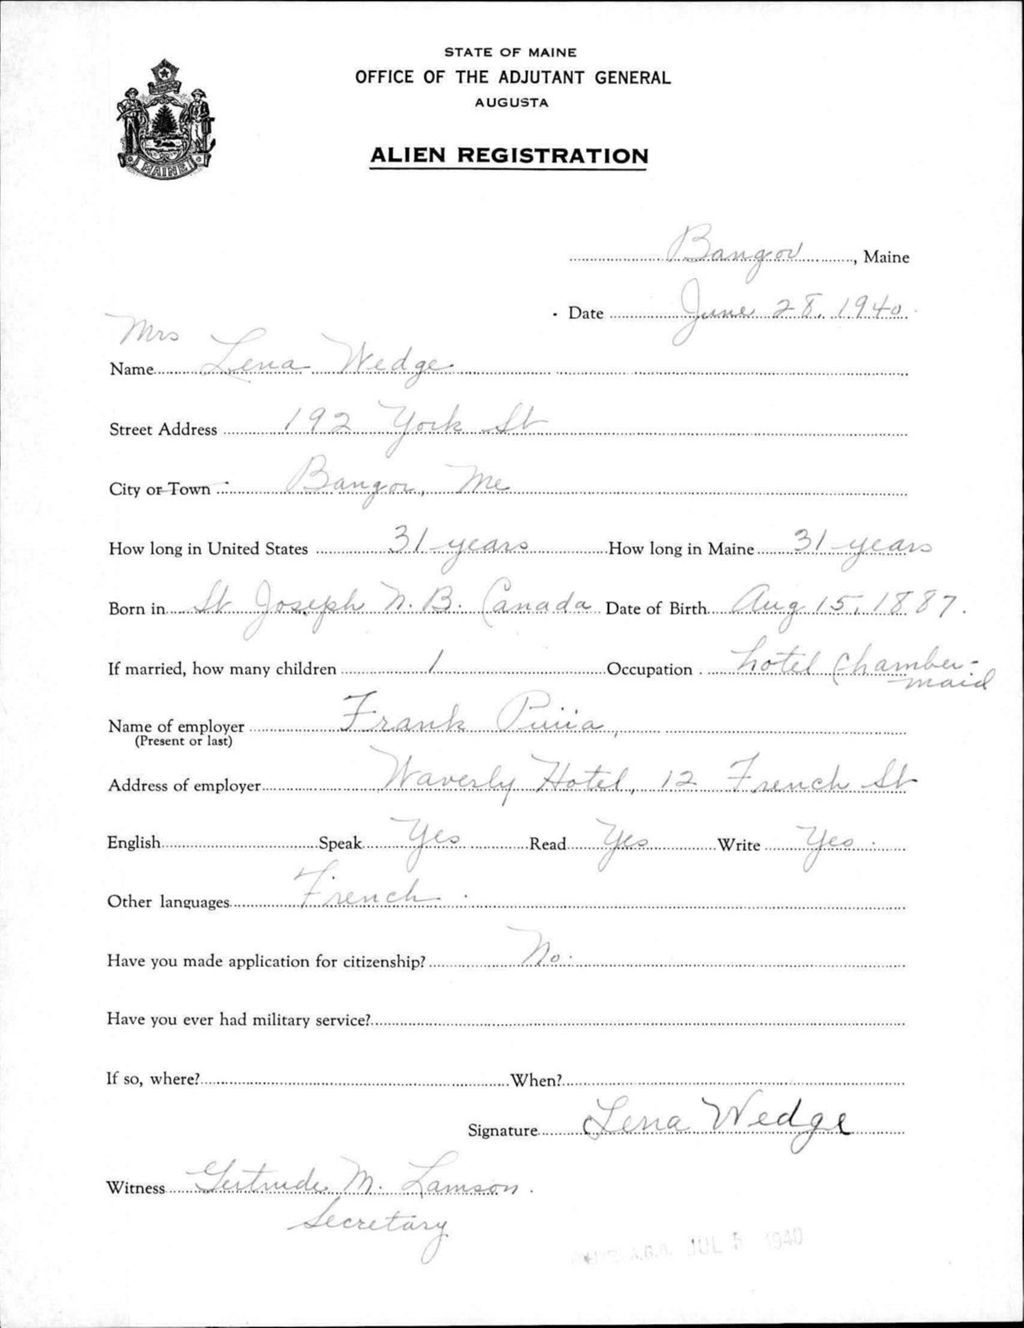 STATE OF MAINE
OFFICE OF THE ADJUTANT GENERAL
AUGUSTA
ALIEN REGISTRATION
MAINE
Bangor, Maine
Date June 28, 1940
Mrs
Name Lena Wedge
Street Address 192 York St
City or Town Bangor, Me
How long in United States 31 years How long in Maine 31 years
Born in St Joseph N.B. Canada Date of Birth Aug 15, 1887.
If married, how many children 1 Occupation hotel Chamber-
maid
Name of employer Frank
(Present or last)
Address of employer Waverly Hotel, 12 French St
English Speak Yes Read Yes Write Yes
Other languages French
Have you made application for citizenship? No.
Have you ever had military service?
If so, where? When?
Signature Lena Wedge
Witness Gertrude M. Lamson.
Secretary
A.G.O. JUL 5 1940